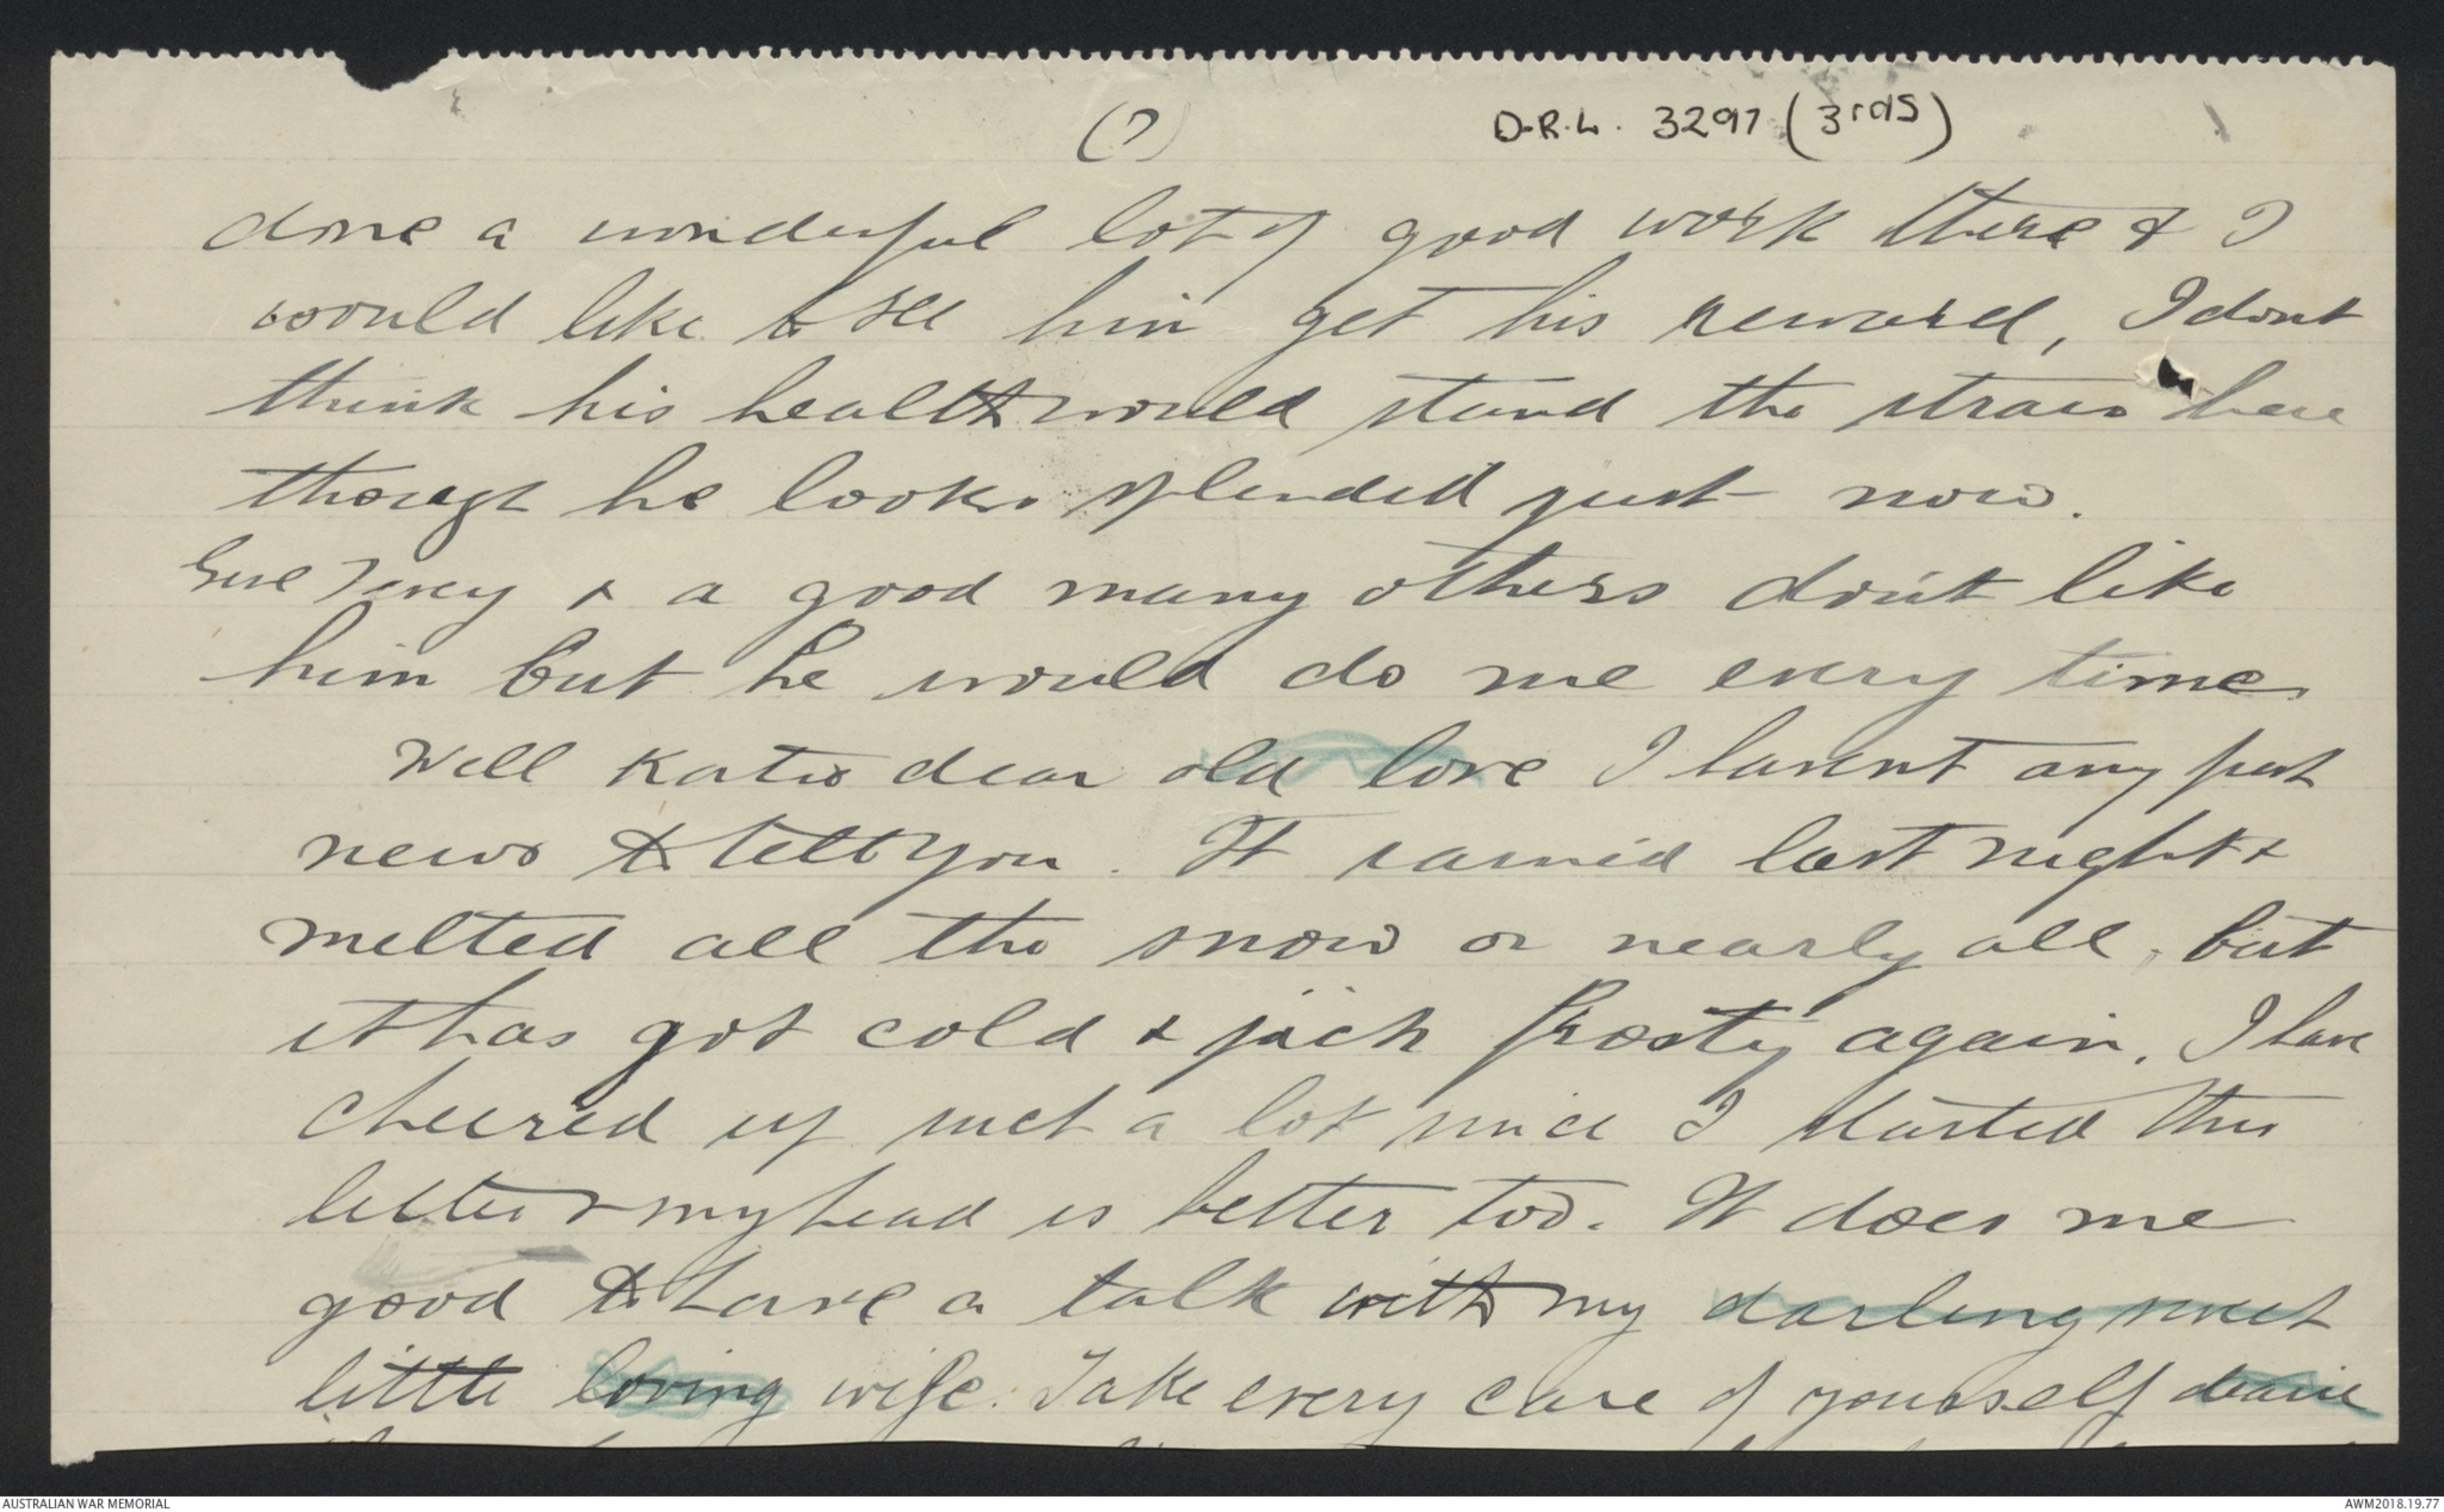 (7) D.R.L. 3297 (3rdS)
done a wonderful lot of good work there & I
would like to see him get his reward, I dont
think his health would stand the strain here
though he looks splendid just now.
& a good many others don't like
him but he would do me every time
Well Katie dear old love I havent any
news to tell you. It rained last night &
melted all the snow or nearly all, but
it has got cold & jack frosty again. I have
cheered up a lot since I started this
letter & my head is better too. It does me
good to have a talk with my darling sweet
little loving wife. Take every care of yourself dearie
AUSTRALIAN WAR MEMORIAL
AWM2018.19.77